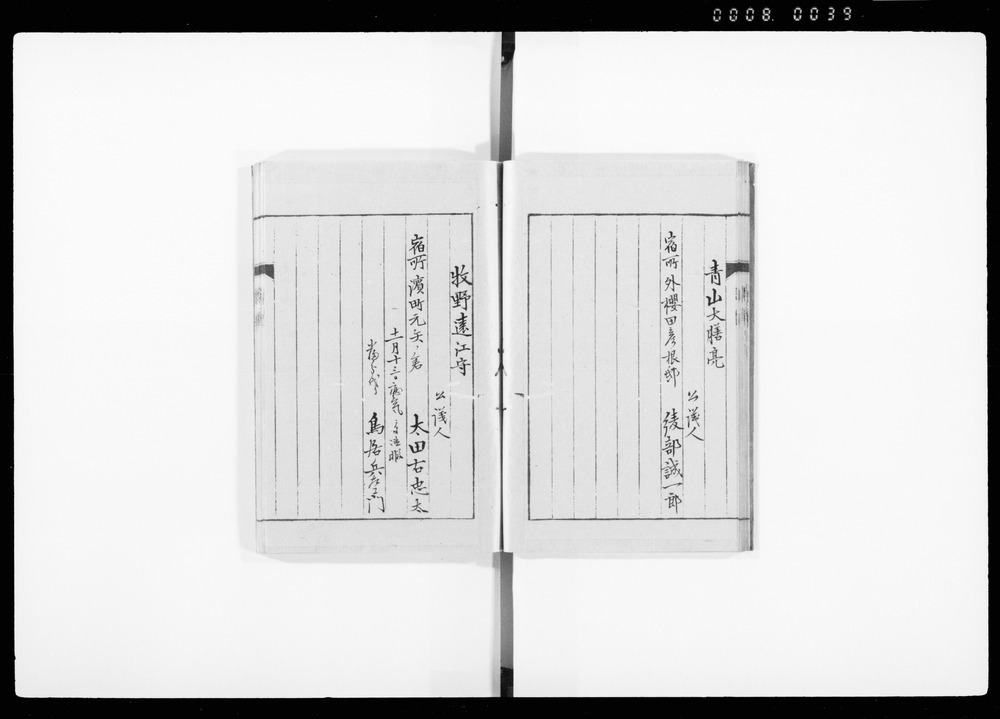 0008. 0039
青山大膳亮
公議人
宿所外櫻田彦根邸 綾部誠一郎
牧野遠江守
公議人
宿所濱町元矢ノ倉 太田右忠太
十一月十三日病気ニ付帰暇
鳥居兵左衛門